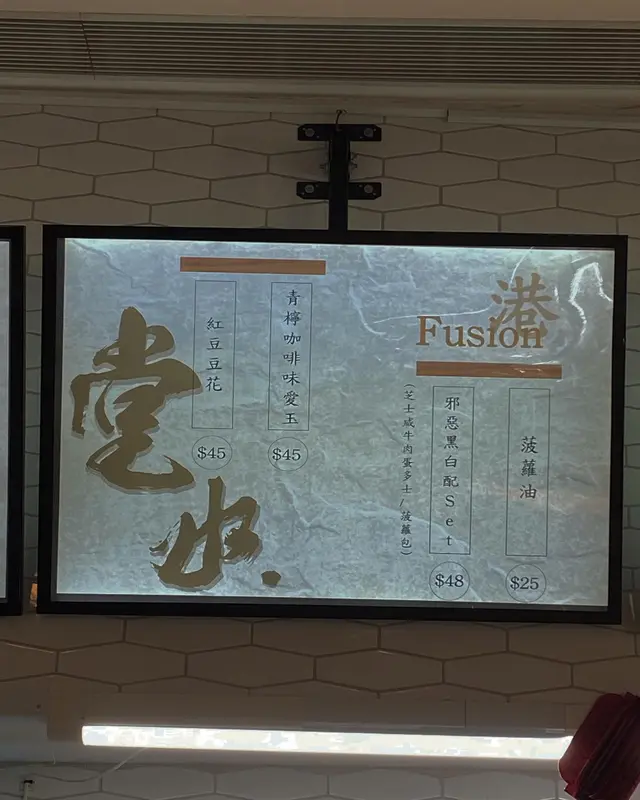 港
Fusion
菠蘿油
$25
邪惡黑白配Set
$48
(芝士咸牛肉蛋多士/菠蘿包)
青檸咖啡味愛玉
$45
紅豆豆花
$45
堂水.